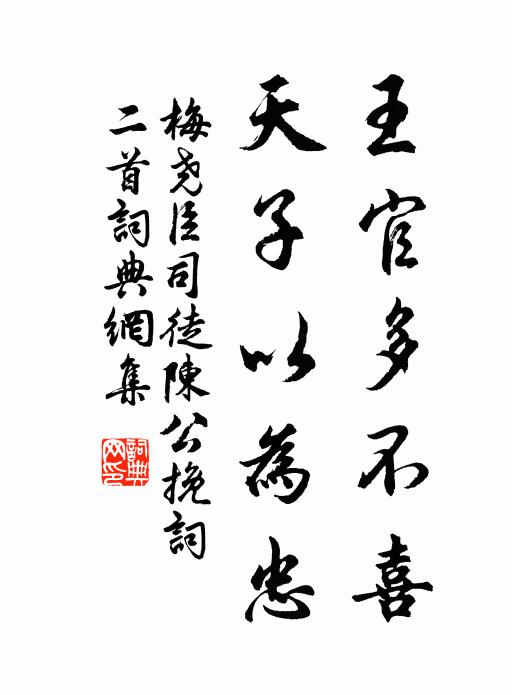 王官多不喜
天子以為忠
梅堯臣司徒陳公挽詞
二首詞典網集
詞典网印